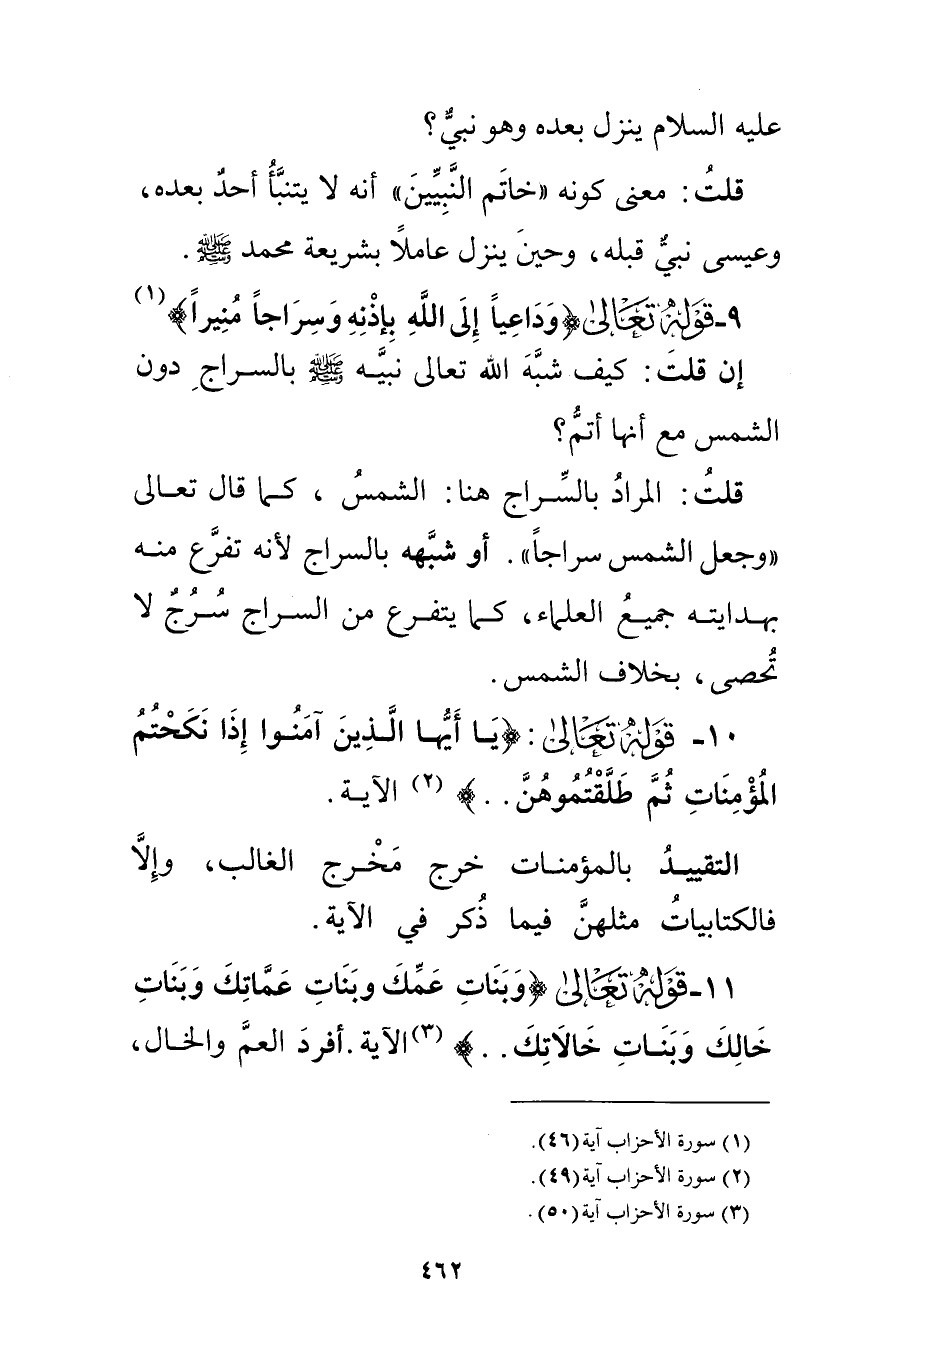 عليه السلام ينزل بعده وهو نبيٌّ؟
قلتُ: معنى كونه «خاتَم النَّبِيِّينَ» أنه لا يتنبَّأُ أحدٌ بعده،
وعيسى نبيٌّ قبله، وحينَ ينزل عاملًا بشريعة محمد ﷺ.
٩ـ قَوْلُهُ تَعَالَىٰ ﴿وَدَاعِياً إِلَى اللَّهِ بِإذْنِهِ وَسِرَاجاً مُنِيراً﴾(١)
إن قلتَ: كيف شبَّهَ الله تعالى نبيَّه ﷺ بالسراجِ دون
الشمس مع أنها أتمُّ؟
قلتُ: المرادُ بالسِّراج هنا: الشمسُ ، كما قال تعالى
«وجعل الشمس سراجاً». أو شبَّهه بالسراج لأنه تفرَّع منه
بهدايته جميعُ العلماء، كما يتفرع من السراج سُرُجٌ لا
تُحصى، بخلاف الشمس.
١٠ـ قَوْلُهُ تَعَالَىٰ: ﴿يَا أَيُّها الَّذِينَ آمَنُوا إِذَا نَكَحْتُمُ
المُؤْمِنَاتِ ثُمَّ طَلَّقْتُمُوهُنَّ. . .﴾ (٢) الآية.
التقييدُ بالمؤمنات خرج مَخْرج الغالب، وإلَّا
فالكتابياتُ مثلهنَّ فيما ذُكر في الآية.
١١ـ قَوْلُهُ تَعَالَىٰ ﴿وَبَنَاتِ عَمِّكَ وبَنَاتِ عَمَّاتِكَ وَبَنَاتِ
خَالِكَ وَبَنَاتِ خَالَاتِكَ. . .﴾ (٣) الآية. أفردَ العمَّ والخال،
(١) سورة الأحزاب آية (٤٦).
(٢) سورة الأحزاب آية (٤٩).
(٣) سورة الأحزاب آية (٥٠).
٤٦٢